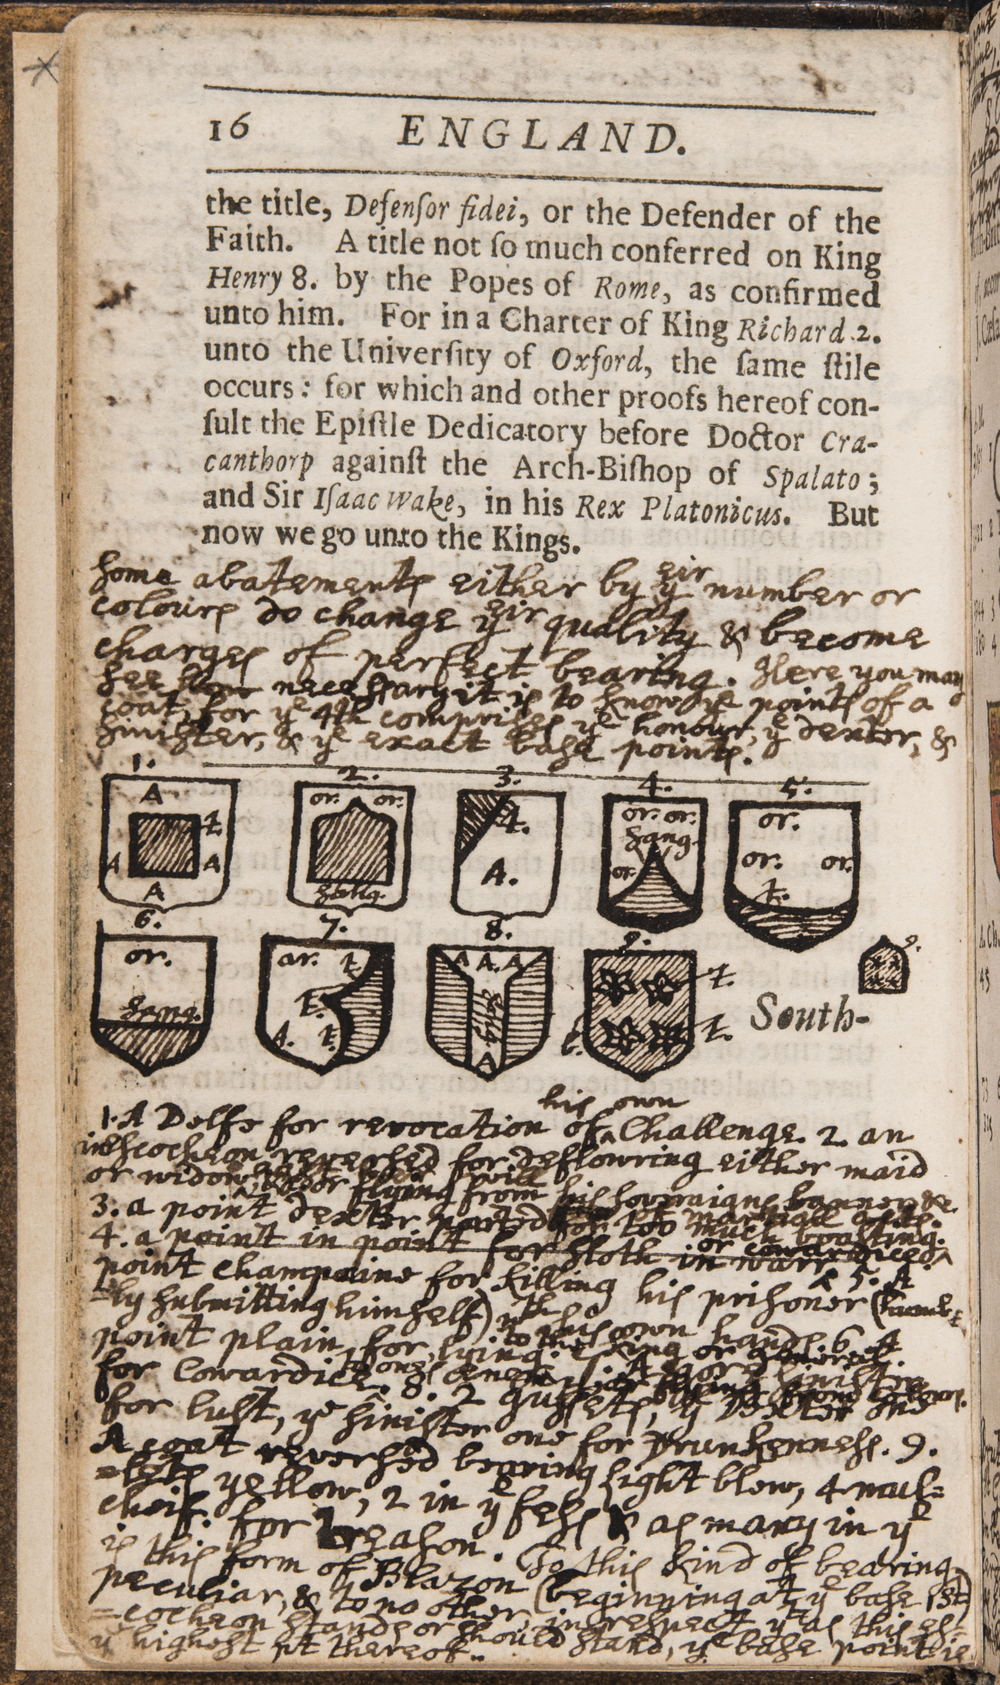 16 ENGLAND.
the title, Defenſor fidei, or the Defender of the
Faith. A title not ſo much conferred on King
Henry 8. by the Popes of Rome, as confirmed
unto him. For in a Charter of King Richard 2.
unto the Univerſity of Oxford, the ſame ſtile
occurs: for which and other proofs hereof con-
ſult the Epiſtle Dedicatory before Doctor Cra-
canthorp againſt the Arch-Biſhop of Spalato;
and Sir Iſaac Wake, in his Rex Platonicus. But
now we go unto the Kings.
Some abatements either by yeir number or
colours do change yeir quality & become
charges of perfect bearing. Here you may
see how necessary it is to know ye points of a
coat, for ye 4th comprises ye honour, ye dexter, &
sinister, & ye exact base points.
1. 2. 3. 4. 5.
A or. or. t. or. or. or.
t. sang.
A A A. or. or. or.
A t.
6. 7. 8. 9. 9.
or. ar. t. A A. A t.
t.
A. t. A t. t.
South-
his own
1. A Delfe for revocation of Challenge. 2 an
inescocheon reversed for deflowring either maid
or widow, or flying from his soveraigns banner &c.
3. a point dexter parted for too much boasting.
4. a point in point for sloth in warr
or cowardice
5. A
point champaine for killing his prisoner (humb-
=ly submitting himself) wth his own hands. 6. A
point plain, for lying to
for Cowardice. 8. 2 gussets, ye Dexter one
for lust, ye sinister one for Drunkenness. 9.
A coat reversed bearing light blew, 4 mul=
=lets yellow, 2 in ye fess & as many in ye
cheif. for Treason. To this kind of bearing
is this form of Blazon (beginning at ye base 1st)
peculiar, & to no other, in respect yt as this es=
=cocheon stands or should stand, ye base point is
ye highest pt thereof.